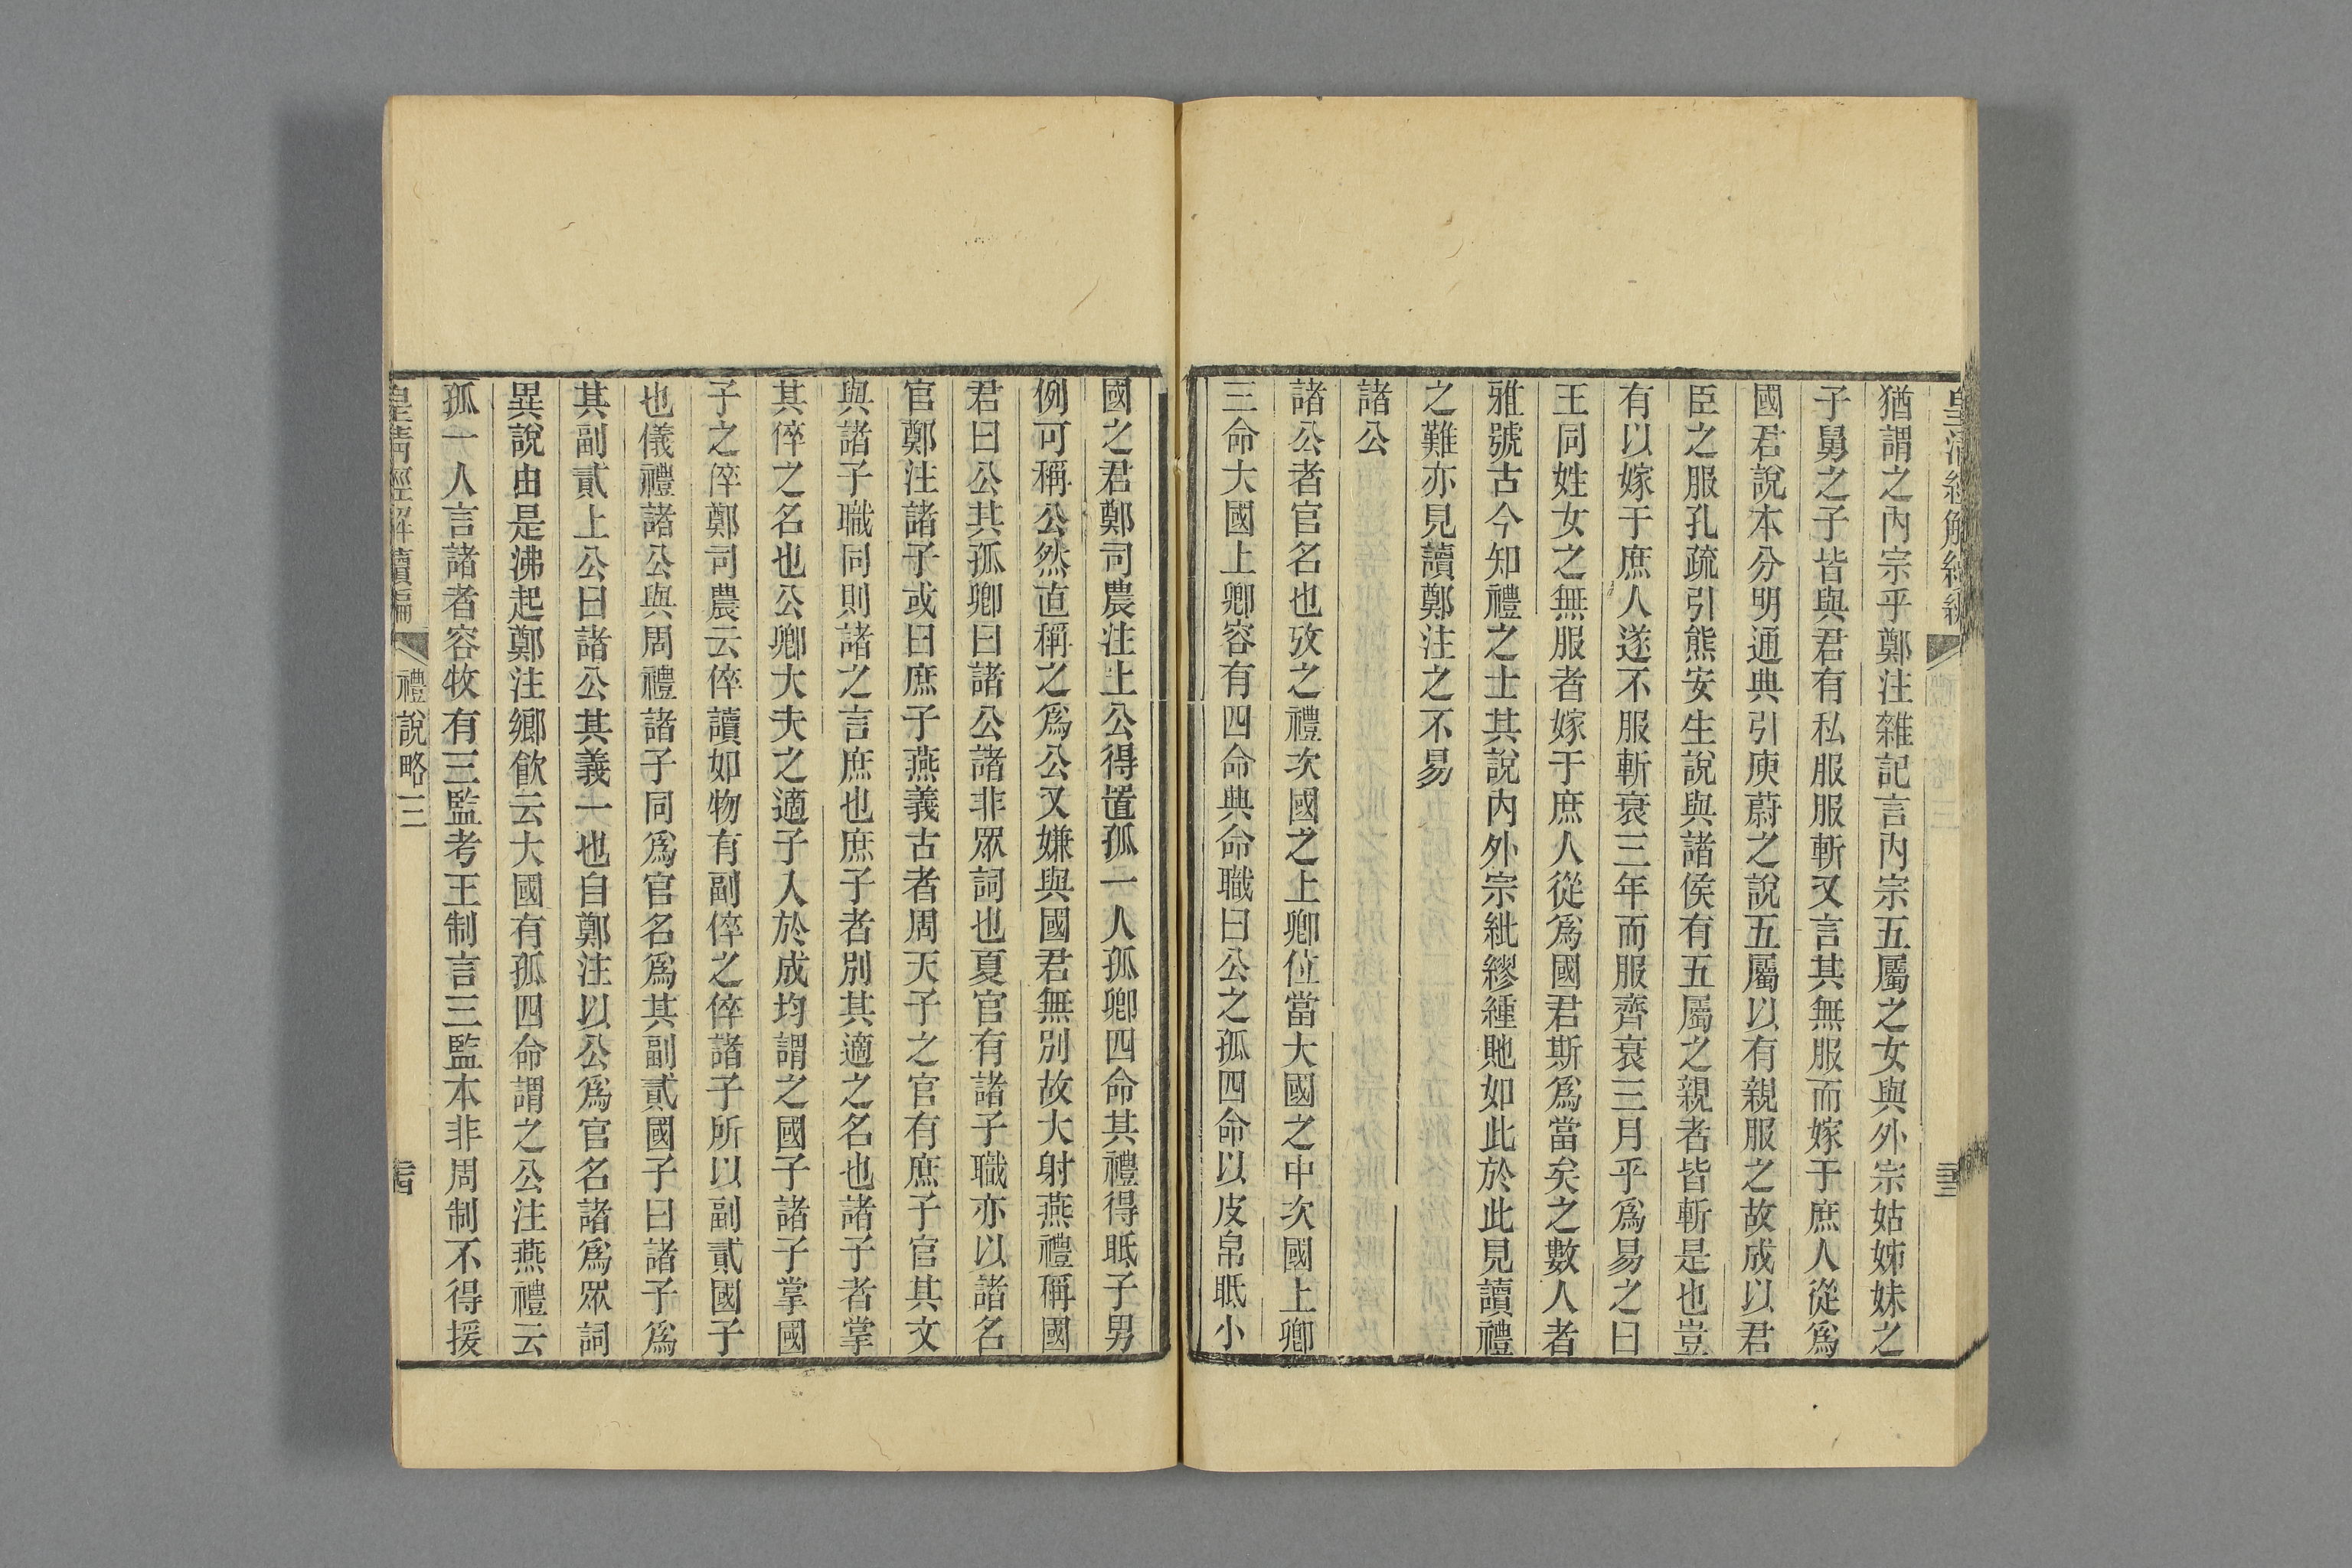 猶謂之內宗乎鄭注雜記言內宗五屬之女與外宗姑姊妹之
子舅之子皆與君有私服服斬又言其無服而嫁于庶人從爲
國君說本分明通典引庾蔚之說五屬以有親服之故成以君
臣之服孔疏引熊安生說與諸侯有五屬之親者皆斬是也豈
有以嫁于庶人遂不服斬衰三年而服齊衰三月乎爲易之曰
王同姓女之無服者嫁于庶人從爲國君斯爲當矣之數人者
雅號古今知禮之士其說內外宗紕繆緟貤如此於此見讀禮
之難亦見讀鄭注之不易
諸公
諸公者官名也攷之禮次國之上卿位當大國之中次國上卿
三命大國上卿容有四命典命職曰公之孤四命以皮帛眡小
國之君鄭司農注上公得置孤一人孤卿四命其禮得眡子男
例可稱公然直稱之爲公又嫌與國君無別故大射燕禮稱國
君曰公其孤卿曰諸公諸非眾詞也夏官有諸子職亦以諸名
官鄭注諸子或曰庶子燕義古者周天子之官有庶子官其文
與諸子職同則諸之言庶也庶子者別其適之名也諸子者掌
其倅之名也公卿大夫之適子入於成均謂之國子諸子掌國
子之倅鄭司農云倅讀如物有副倅之倅諸子所以副貳國子
也儀禮諸公與周禮諸子同爲官名爲其副貳國子曰諸子爲
其副貳上公曰諸公其義一也自鄭注以公爲官名諸爲眾詞
異說由是沸起鄭注鄉飮云大國有孤四命謂之公注燕禮云
孤一人言諸者容牧有三監考王制言三監本非周制不得援
皇清經解續編 禮說略三